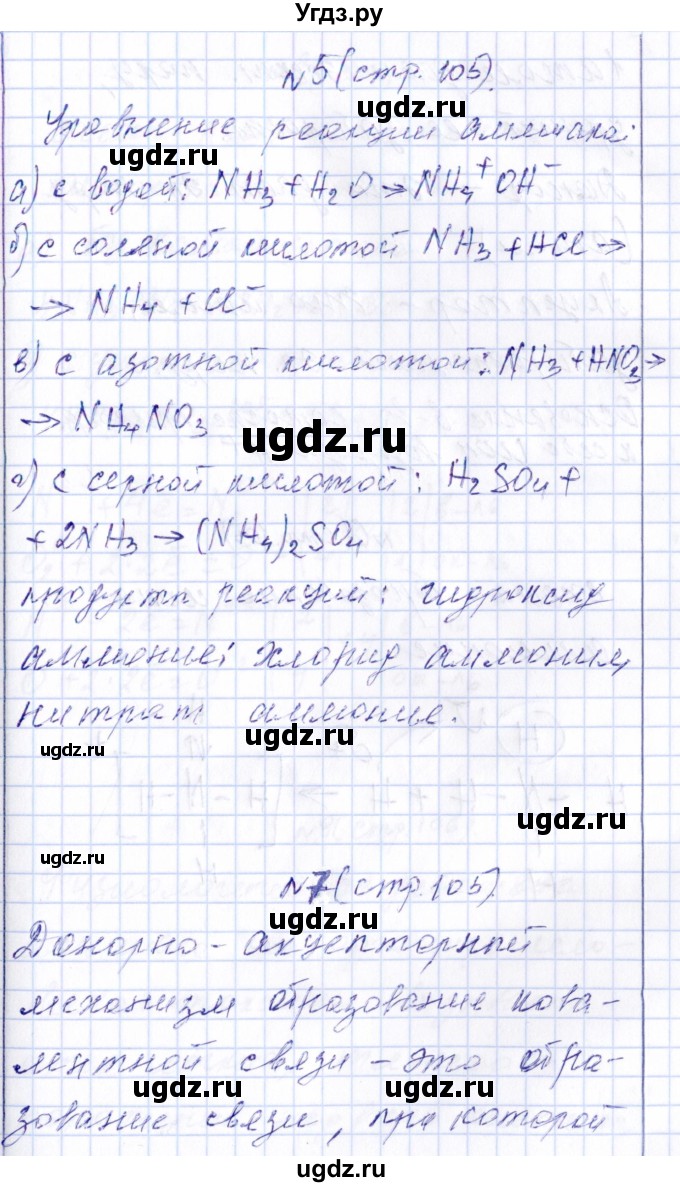 Угдз.ру
№5 (стр. 105).
ugdz.ru
Уравнение реакции аммиака:
ugdz.ru
а) с водой: NH₃ + H₂O → NH₄⁺ OH⁻
б) с соляной кислотой NH₃ + HCl →
→ NH₄ + Cl⁻
в) с азотной кислотой: NH₃ + HNO₃ →
→ NH₄NO₃
ugdz.ru
г) с серной кислотой: H₂SO₄ +
+ 2NH₃ → (NH₄)₂SO₄
продукты реакций: гидроксид
ugdz.ru
аммоние; хлорид аммония,
нитрат аммоние.
ugdz.ru
ugdz.ru
ugdz.ru
ugdz.ru
№7 (стр. 105).
ugdz.ru
Донорно-акцепторный
механизм образование кова-
лентной связи – это обра-
ugdz.ru
зование связи, при которой
ugdz.ru